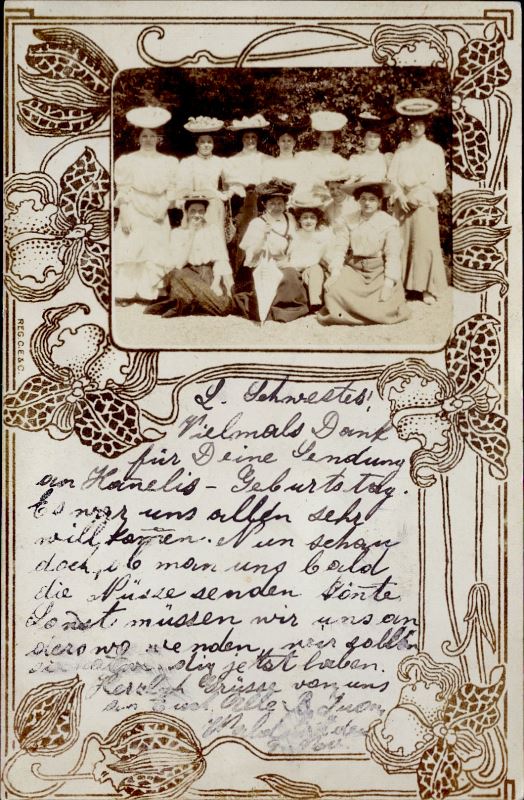 L. Schwester!
Vielmals Dank
für Deine Sendung
an Hanelis-Geburtstag.
Es war uns allen sehr
willkommen. Nun schau
doch, ob man uns bald
die Nüsse senden könte
Sonst müssen wir uns an
derswo wenden, wir sollten
sie jetzt haben.
Herzlich Grüsse von uns
an Euch Alle
REG.C.E&C.